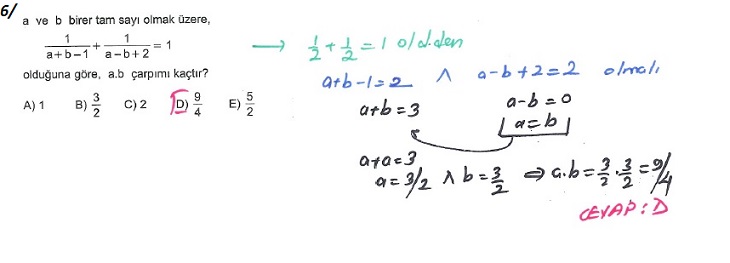 6/
a ve b birer tam sayı olmak üzere,
1/(a+b−1) + 1/(a−b+2) = 1
olduğuna göre, a.b çarpımı kaçtır?
A) 1 B) 3/2 C) 2 D) 9/4 E) 5/2
→ 1/2 + 1/2 = 1 old.den
a+b−1=2 ∧ a−b+2=2 olmalı
a+b=3 a−b=0
a=b
a+a=3
a=3/2 ∧ b=3/2 ⇒ a.b=3/2.3/2=9/4
CEVAP:D